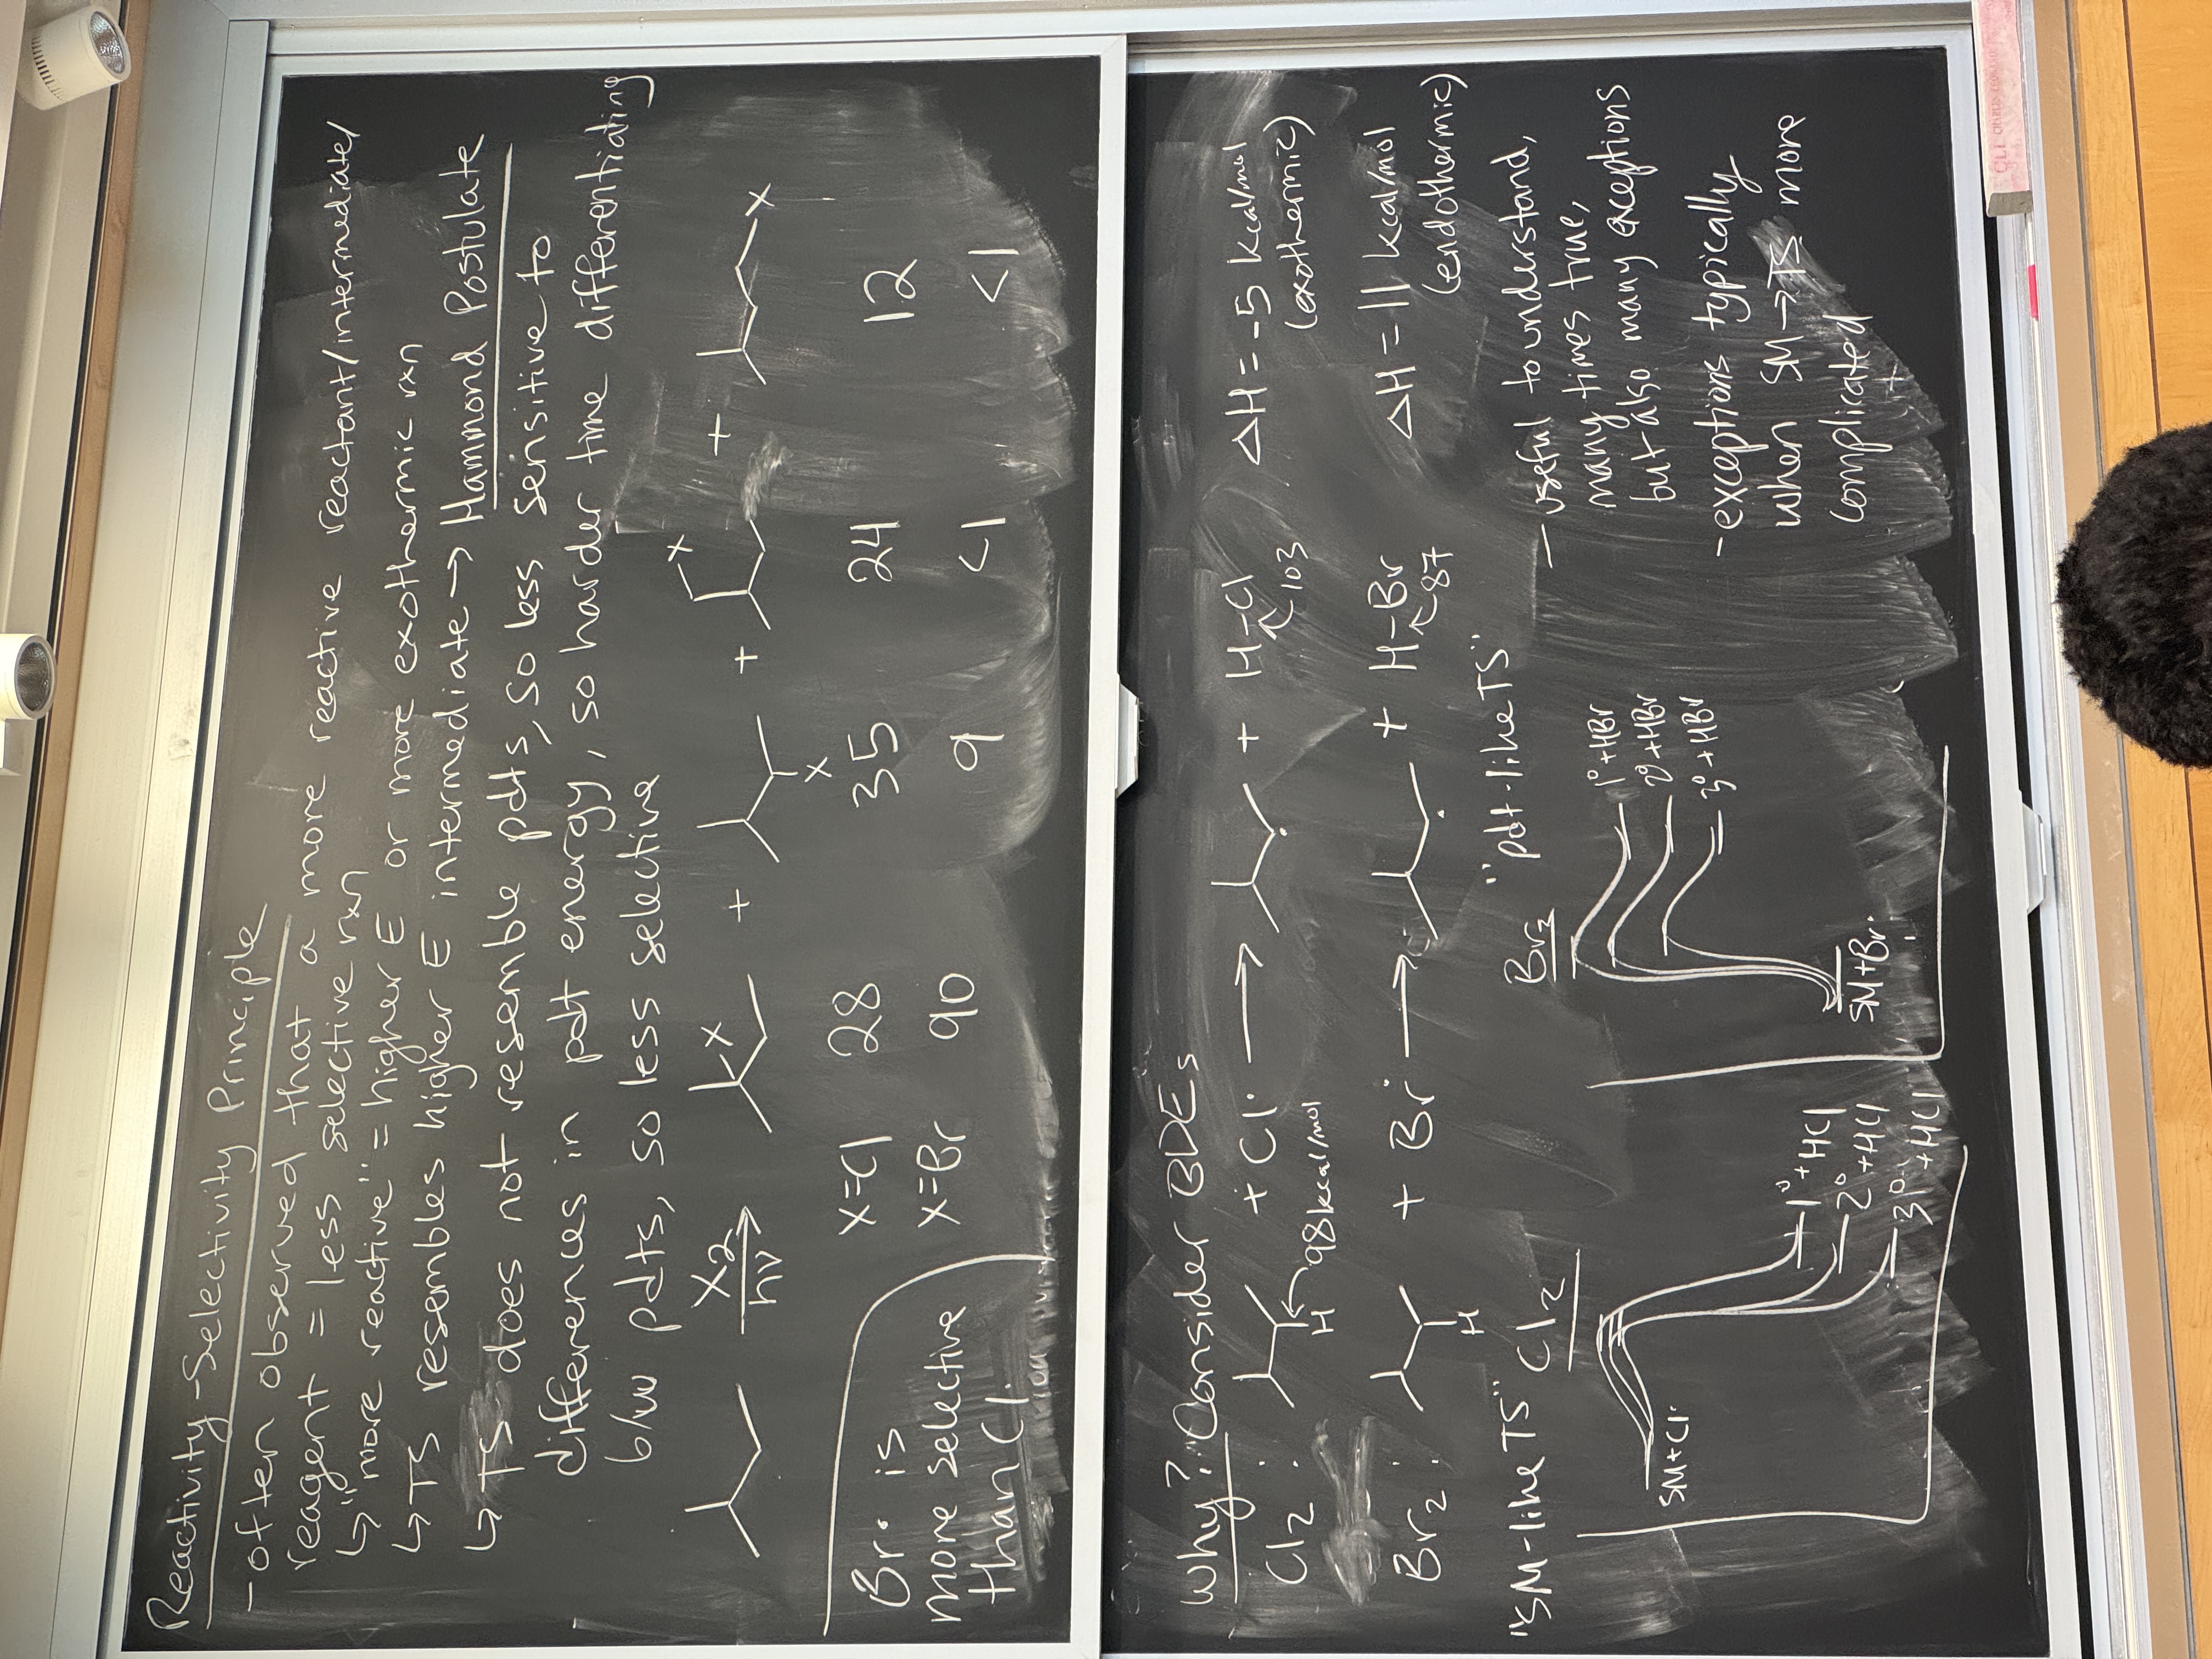 Reactivity-Selectivity Principle
- often observed that a more reactive reactant/intermediate/
reagent = less selective rxn
↳ "more reactive" = higher E or more exothermic rxn
↳ TS resembles higher E intermediate → Hammond Postulate
↳ TS does not resemble pdts, so less sensitive to
differences in pdt energy, so harder time differentiating
b/w pdts, so less selective
X2
hν
X + X + X + X
X=Cl 28 35 24 12
X=Br 90 9 <1 <1
Br· is
more selective
than Cl·
Why? Consider BDEs
Cl2: H + Cl· → + H-Cl ΔH = -5 kcal/mol
98 kcal/mol 103 (exothermic)
Br2: H + Br· → + H-Br ΔH = 11 kcal/mol
87 (endothermic)
"SM-like TS" Cl2
SM+Cl·
1° + HCl
2° + HCl
3° + HCl
Br2 "pdt-like TS"
1° + HBr
2° + HBr
3° + HBr
SM+Br·
- useful to understand,
many times true,
but also many exceptions
- exceptions typically
when SM → TS more
complicated
CLI CHARLES LEONARD